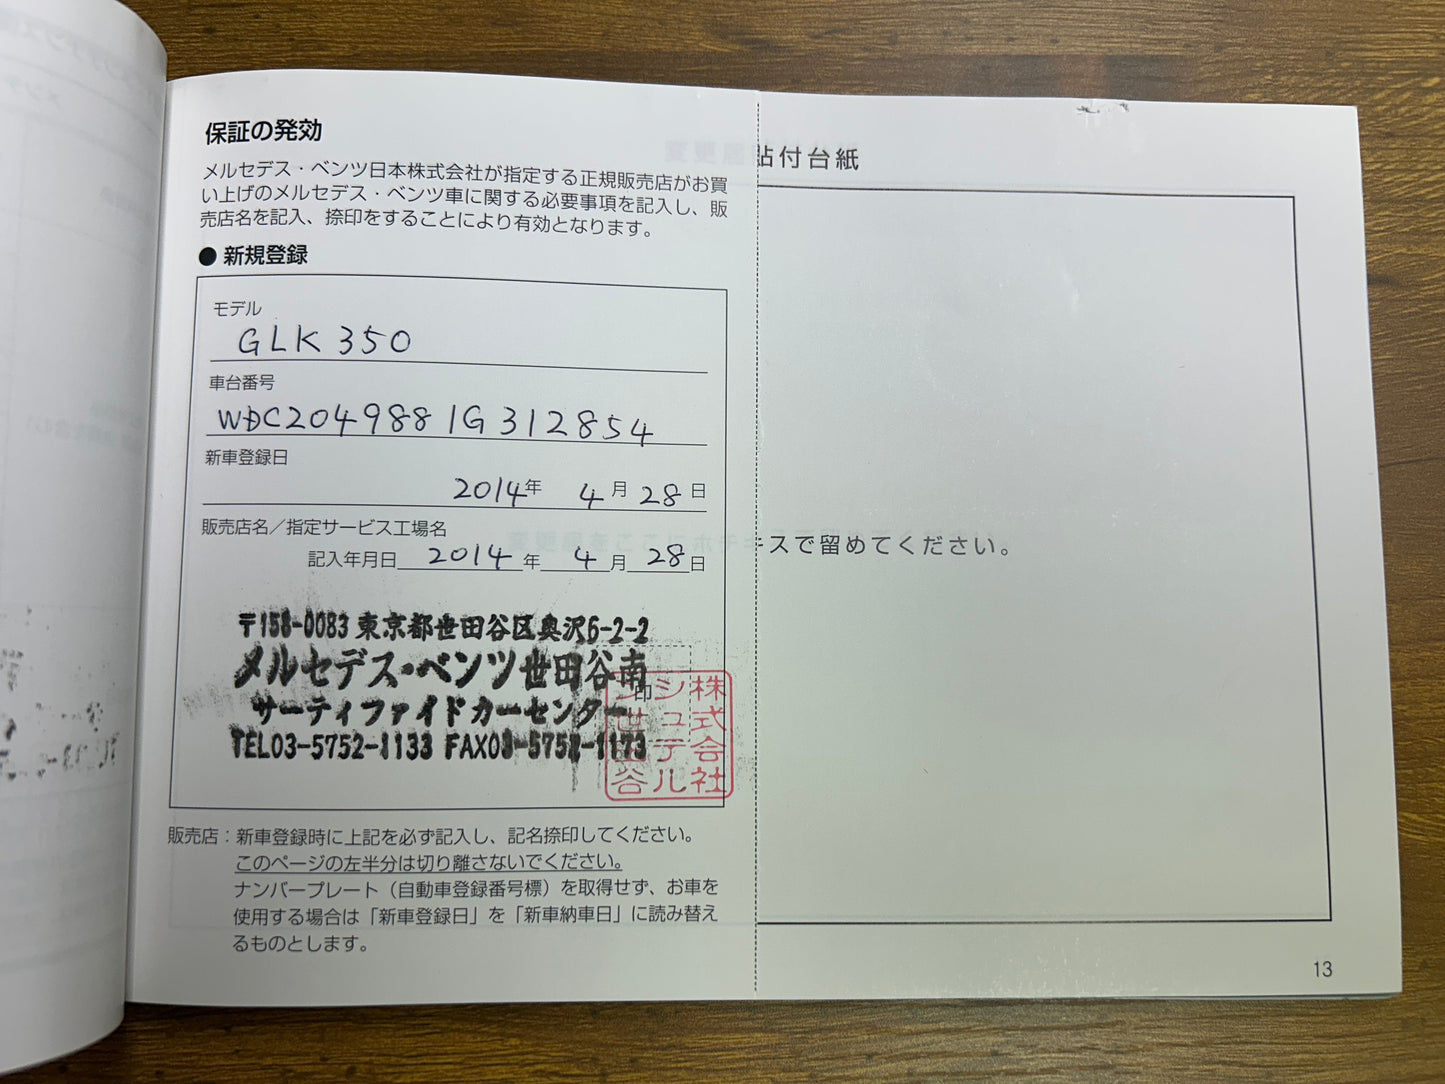 保証の発効
メルセデス・ベンツ日本株式会社が指定する正規販売店がお買
い上げのメルセデス・ベンツ車に関する必要事項を記入し、販
売店名を記入、捺印をすることにより有効となります。
● 新規登録
モデル
GLK 350
車台番号
WDC2049881G312854
新車登録日
2014年 4月 28日
販売店名／指定サービス工場名
記入年月日 2014 年 4 月 28 日
〒158-0083 東京都世田谷区奥沢6-2-2
メルセデス・ベンツ世田谷南
サーティファイドカーセンター
TEL03-5752-1133 FAX03-5752-1173
印
株式会社
シュテル
世田谷
販売店：新車登録時に上記を必ず記入し、記名捺印してください。
このページの左半分は切り離さないでください。
ナンバープレート（自動車登録番号標）を取得せず、お車を
使用する場合は「新車登録日」を「新車納車日」に読み替え
るものとします。
貼付台紙
キスで留めてください。
13